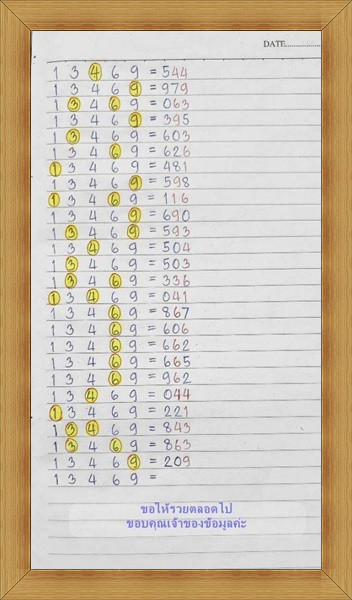 DATE................
1 3 4 6 9 = 544
1 3 4 6 9 = 979
1 3 4 6 9 = 063
1 3 4 6 9 = 395
1 3 4 6 9 = 603
1 3 4 6 9 = 626
1 3 4 6 9 = 481
1 3 4 6 9 = 598
1 3 4 6 9 = 116
1 3 4 6 9 = 690
1 3 4 6 9 = 593
1 3 4 6 9 = 504
1 3 4 6 9 = 503
1 3 4 6 9 = 336
1 3 4 6 9 = 041
1 3 4 6 9 = 867
1 3 4 6 9 = 606
1 3 4 6 9 = 662
1 3 4 6 9 = 665
1 3 4 6 9 = 962
1 3 4 6 9 = 044
1 3 4 6 9 = 221
1 3 4 6 9 = 843
1 3 4 6 9 = 863
1 3 4 6 9 = 209
1 3 4 6 9 =
ขอให้รวยตลอดไป
ขอบคุณเจ้าของข้อมูลค่ะ